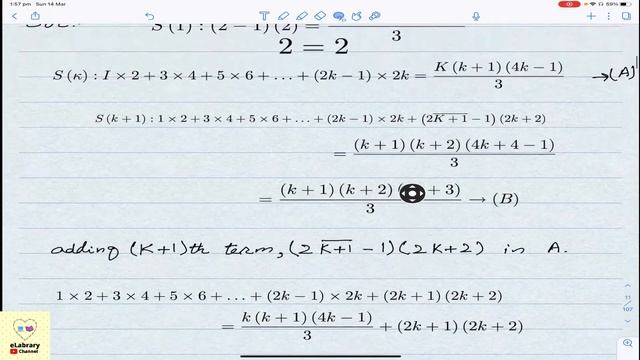 1:57 pm Sun 14 Mar
59%
S (1) : (2 − 1) (2) = 
3
2 = 2
S (κ) : I × 2 + 3 × 4 + 5 × 6 + … + (2k − 1) × 2k = K (k + 1) (4k − 1) / 3 → (A)
S (k + 1) : 1 × 2 + 3 × 4 + 5 × 6 + … + (2k − 1) × 2k + (2K + 1 − 1) (2k + 2)
= (k + 1) (k + 2) (4k + 4 − 1) / 3
= (k + 1) (k + 2) ( + 3) / 3 → (B)
adding (K+1)th term, (2 K+1 −1) (2K+2) in A.
1 × 2 + 3 × 4 + 5 × 6 + … + (2k − 1) × 2k + (2k + 1) (2k + 2)
= k (k + 1) (4k − 1) / 3 + (2k + 1) (2k + 2)
11
107
eLabrary
Channel